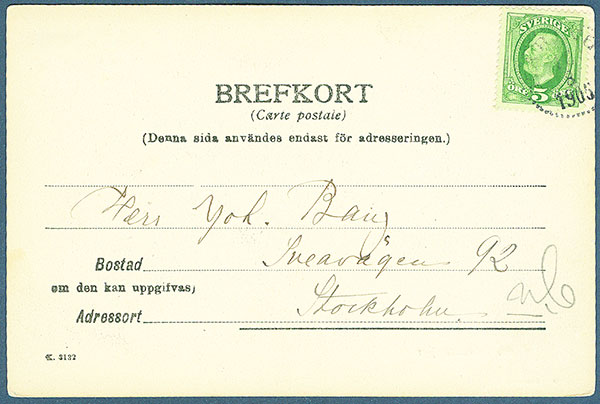 SVERIGE
ÖRE 5
1903
BREFKORT
(Carte postale)
(Denna sida användes endast för adresseringen.)
Herr Joh. Bang
Bostad Sveavägen 92
om den kan uppgifvas,
Adressort Stockholm.
K. 3132